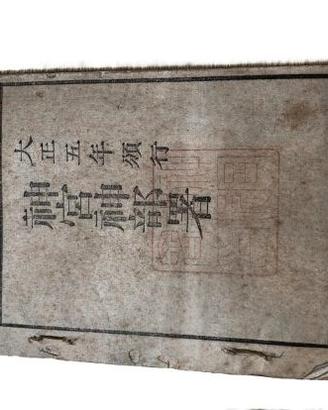 大正五年頒行
神宮神部署